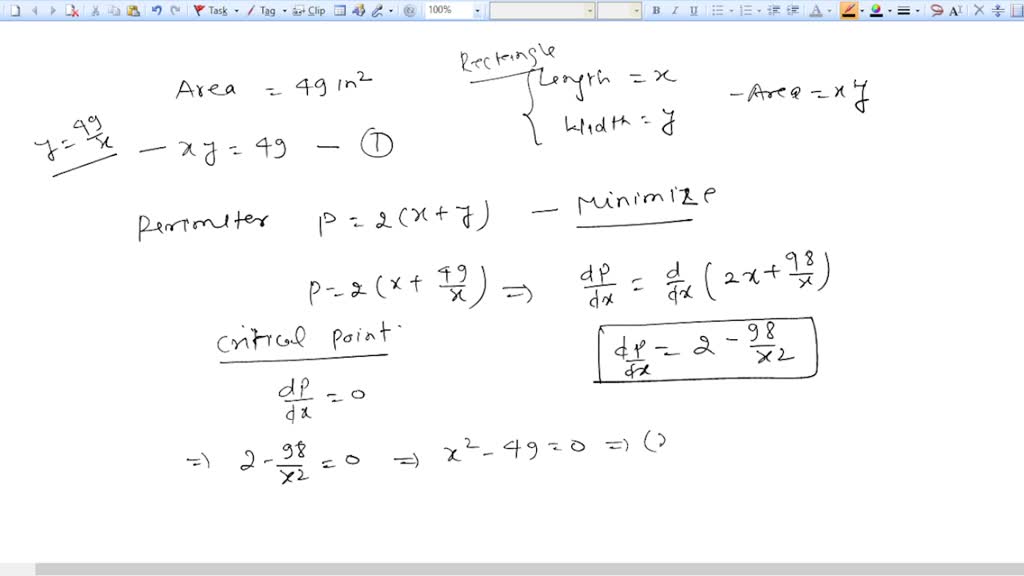 Task Tag Clip 100% B I U
Rectangle
Area = 49 in²
Length = x
Width = y
- Area = xy
y = 49/x
- xy = 49 - ①
Perimeter P = 2(x + y) - Minimize
P = 2(x + 49/x) ⇒ dP/dx = d/dx (2x + 98/x)
Critical Point
dP/dx = 2 - 98/x2
dP/dx = 0
⇒ 2 - 98/x2 = 0 ⇒ x² - 49 = 0 ⇒ (